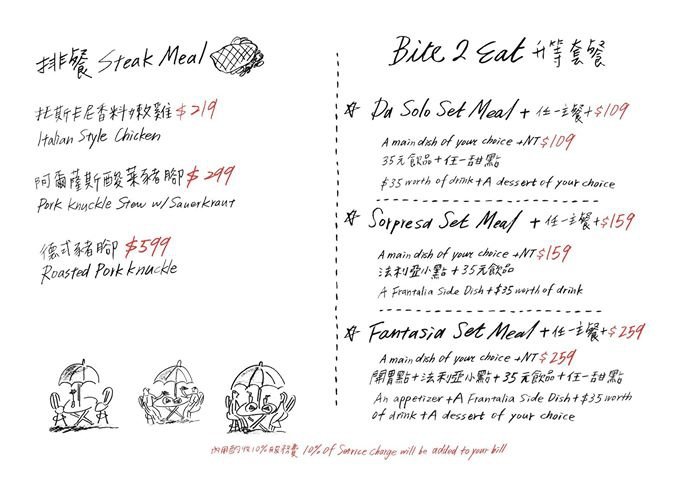 排餐 Steak Meal
托斯卡尼香料嫩雞 $219
Italian Style Chicken
阿爾薩斯酸菜豬腳 $299
Pork Knuckle Stew w/ Sauerkraut
德式豬腳 $599
Roasted Pork knuckle
Bite 2 Eat 升等套餐
Da Solo Set Meal + 任一主餐+$109
A main dish of your choice +NT$109
35元飲品+任一甜點
$35 worth of drink+A dessert of your choice
Sorpresa Set Meal + 任一主餐+$159
A main dish of your choice +NT$159
法利亞小點+35元飲品
A Frantalia Side Dish+$35 worth of drink
Fantasia Set Meal+任一主餐+$259
A main dish of your choice +NT$259
開胃點+法利亞小點+35元飲品+任一甜點
An appetizer+A Frantalia Side Dish+$35 worth
of drink+A dessert of your choice
內用酌收10%服務費 10% of Service charge will be added to your bill